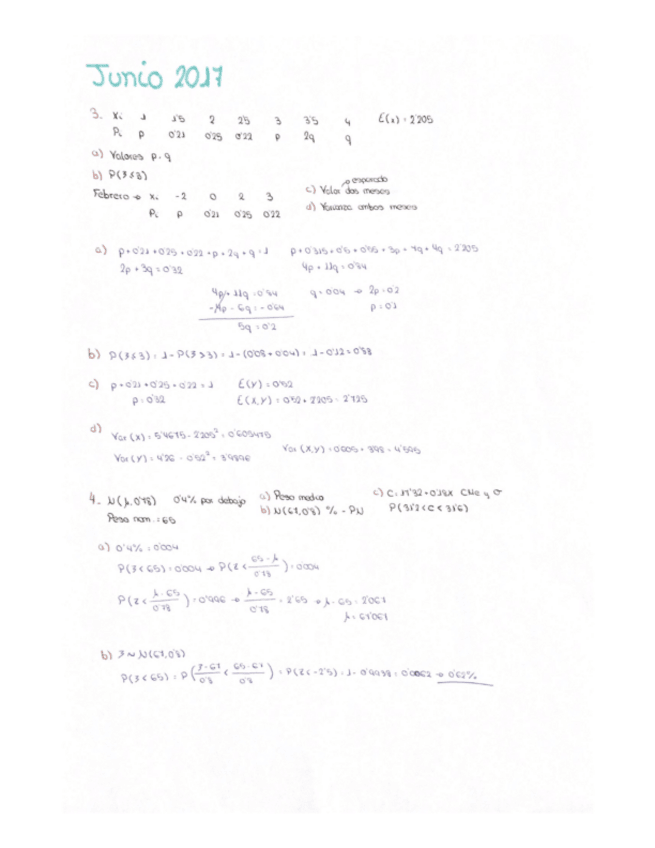 Junio 2017
3. Xi 1 1'5 2 2'5 3 3'5 4 E(x) = 2'205
Pi p 0'21 0'25 0'22 p 2q q
a) Valores p · q
b) P(ξ≤3)
esperado
Febrero → Xi -2 0 2 3 c) Valor dos meses
Pi p 0'21 0'25 0'22 d) Varianza ambos meses
a) p+0'21+0'25+0'22+p+2q+q=1 p+0'315+0'5+0'55+3p+7q+4q=2'205
2p+3q=0'32 4p+11q=0'84
4p+11q=0'84 q=0'04 → 2p=0'2
-4p-6q=-0'64 p=0'1
5q=0'2
b) P(ξ≤3)=1-P(ξ>3)=1-(0'08+0'04)=1-0'12=0'88
c) p+0'21+0'25+0'22=1 E(Y)=0'52
p=0'32 E(X,Y)=0'52+2'205=2'725
d)
Var(X)=5'4675-2'205²=0'605475
Var(X,Y)=0'605+3'98=4'595
Var(Y)=4'26-0'52²=3'9896
4. N(μ,0'78) 0'4% por debajo a) Peso medio c) C=17'32+0'18X y σ
Peso nom.=65 b) N(67,0'8) % - PN P(31'2<C<31'6)
a) 0'4%=0'004
P(ξ<65)=0'004 → P(Z<(65-μ)/0'78)=0'004
P(Z<(μ-65)/0'78)=0'996 → (μ-65)/0'78=2'65 → μ-65=2'067
μ=67'067
b) ξ~N(67,0'8)
P(ξ<65)=P((ξ-67)/0'8<(65-67)/0'8)=P(Z<-2'5)=1-0'9938=0'0062 → 0'62%